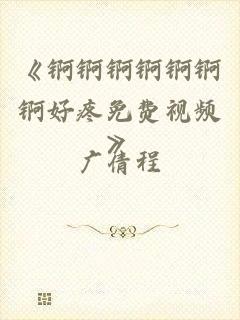 《锕锕锕锕锕锕
锕好疼免费视频
》
广倩程